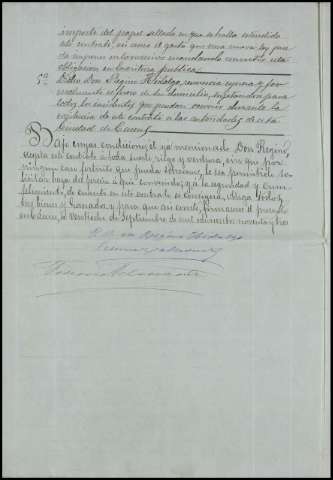 importe del papel sellado en que se halla extendido
este contrato, así como el gasto que una nueva ley pue-
da imponer en lo sucesivo mandando convertir esta
obligacion en escritura pública
5ª Dicho Don Regino Hidalgo, renuncia expresa y for-
malmente el fuero de su domicilio, sujetandose para
todos los incidentes que puedan ocurrir durante la
vigencia de este contrato a las autoridades de esta
Ciudad de Cuenca
Bajo cuyas condiciones el ya mencionado Don Regino,
acepta este contrato a toda suerte riesgo y ventura, sin que por
ningun caso fortuito que pueda sobrevenir, le sea permitido so-
licitar baja del precio a que convenido; y a la seguridad y cum-
plimiento, de cuanto en este contrato se consigna, obliga todos
sus bienes y ganados y para que asi conste, firmamos el presente
en Cuenca, a veintiocho de Septiembre de mil ochocientos noventa y tres
P. O. de Regino Hidalgo